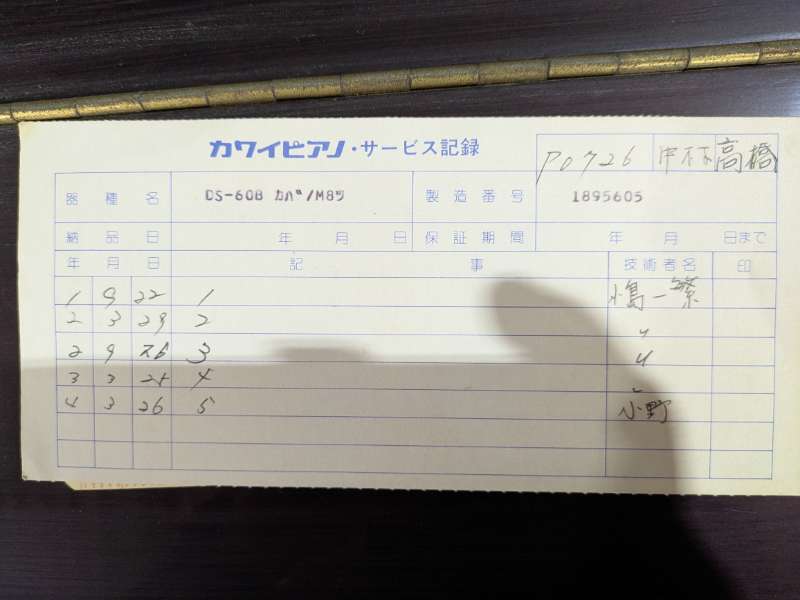 カワイピアノ・サービス記録
P0726 高橋
器種名 DS-60B カバ/M8ツ 製造番号 1895605
納品日 年 月 日 保証期間 年 月 日まで
年 月 日 記 事 技術者名 印
1 9 22 1 小島一繁
2 3 29 2 〃
2 9 26 3 〃
3 3 25 4 〃
4 3 26 5 小野